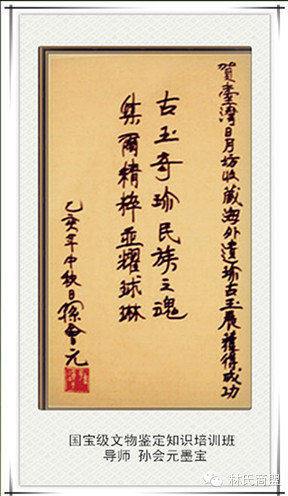 賀臺灣日月坊收藏海外遺珍古玉展獲得成功
古玉奇珍民族之魂
集爾精粹亚耀球琳
乙亥年中秋日孫會元
国宝级文物鉴定知识培训班
导师 孙会元墨宝
林氏商盟